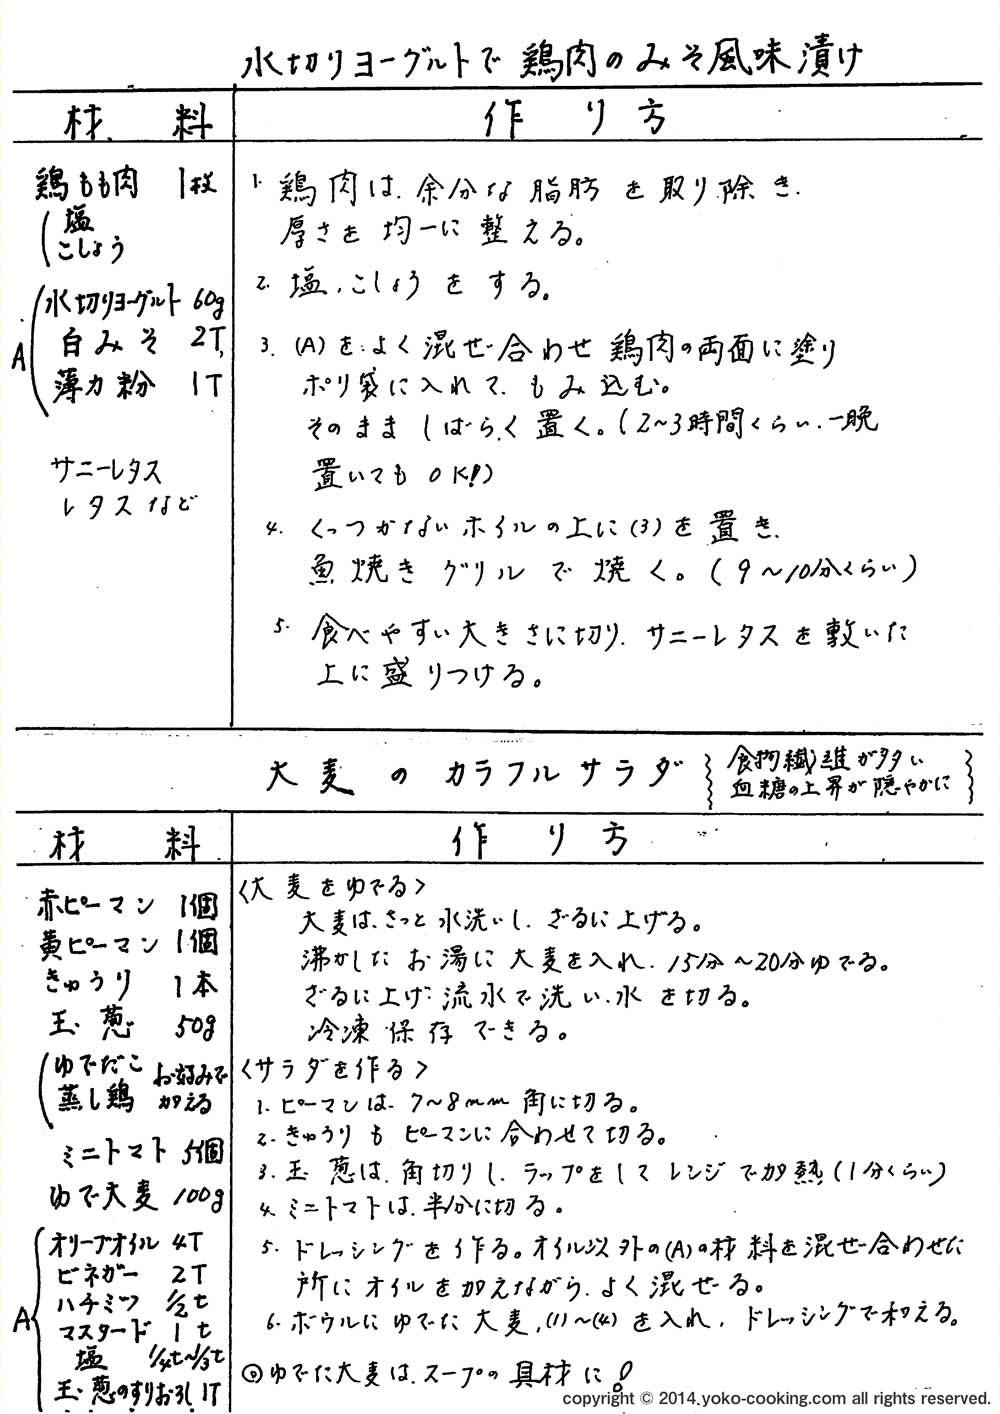 水切りヨーグルトで鶏肉のみそ風味漬け
材 料
作 り 方
鶏もも肉 1枚
(塩
こしょう
A(水切りヨーグルト 60g
白みそ 2T
薄力粉 1T
サニーレタス
レタスなど
1. 鶏肉は、余分な脂肪を取り除き、
厚さを均一に整える。
2. 塩、こしょうをする。
3. (A)をよく混ぜ合わせ鶏肉の両面に塗り
ポリ袋に入れて、もみ込む。
そのまましばらく置く。(2〜3時間くらい、一晩
置いてもOK!)
4. くっつかないホイルの上に(3)を置き、
魚焼きグリルで焼く。(9〜10分くらい)
5. 食べやすい大きさに切り、サニーレタスを敷いた
上に盛りつける。
大麦のカラフルサラダ
食物繊維が多い
血糖の上昇が穏やかに
材 料
作 り 方
赤ピーマン 1個
黄ピーマン 1個
きゅうり 1本
玉葱 50g
(ゆでだこ お好みで
蒸し鶏 加える
ミニトマト 5個
ゆで大麦 100g
A(オリーブオイル 4T
ビネガー 2T
ハチミツ 1/2t
マスタード 1t
塩 1/4t〜1/3t
玉葱のすりおろし 1T
〈大麦をゆでる〉
大麦は、さっと水洗いし、ざるに上げる。
沸かしたお湯に大麦を入れ、15分〜20分ゆでる。
ざるに上げ流水で洗い、水を切る。
冷凍保存できる。
〈サラダを作る〉
1. ピーマンは、7〜8mm角に切る。
2. きゅうりもピーマンに合わせて切る。
3. 玉葱は、角切りし、ラップをしてレンジで加熱(1分くらい)
4. ミニトマトは、半分に切る。
5. ドレッシングを作る。オイル以外の(A)の材料を混ぜ合わせた
所にオイルを加えながら、よく混ぜる。
6. ボウルにゆでた大麦、(1)〜(4)を入れ、ドレッシングで和える。
◎ゆでた大麦は、スープの具材に!
copyright © 2014.yoko-cooking.com all rights reserved.